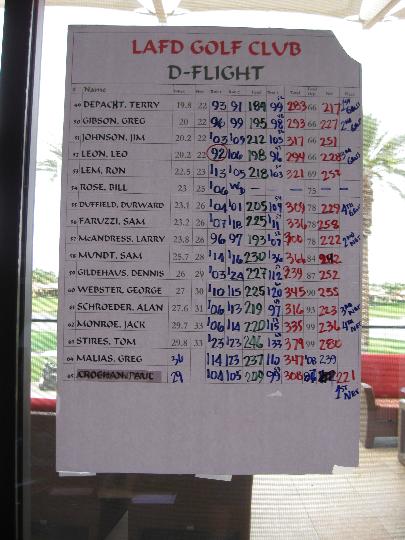 LAFD GOLF CLUB
D-FLIGHT
# Name Total
49 DEPACHT, TERRY 19.8 22 93 91 184 99 283 66 217
50 GIBSON, GREG 20 22 96 99 195 98 293 66 227 2nd
51 JOHNSON, JIM 20.2 22 103 109 212 105 317 66 251
52 LEON, LEO 20.2 22 92 106 198 96 294 66 228
53 LEM, RON 22.5 113 105 218 103 321 69
54 ROSE, BILL 23 25 106 WD — — — 75 —
55 DUFFIELD, DURWARD 23.1 26 104 101 205 78
56 FARUZZI, SAM 23.2 26 107 118 225 111 336 78 258
57 McANDRESS, LARRY 23.8 26 96 97 193 107 300 78 222
58 MUNDT, SAM 25.7 28 114 116 230 136 366 84
59 GILDEHAUS, DENNIS 26 29 103 124 227 112 87 252
60 WEBSTER, GEORGE 27 30 110 115 225 120 345 90 255
61 SCHROEDER, ALAN 27.6 31 106 113 219 97 316 93 223
62 MONROE, JACK 29.7 33 106 114 220 115 335 99 236
63 STIRES, TOM 29.8 33 123 123 246 133 379 99 280
64 MALIAS, GREG 36 114 123 237 110 347 108 239
65 CROGHAN, PAUL 29 104 105 209 99 308 221
1st NET